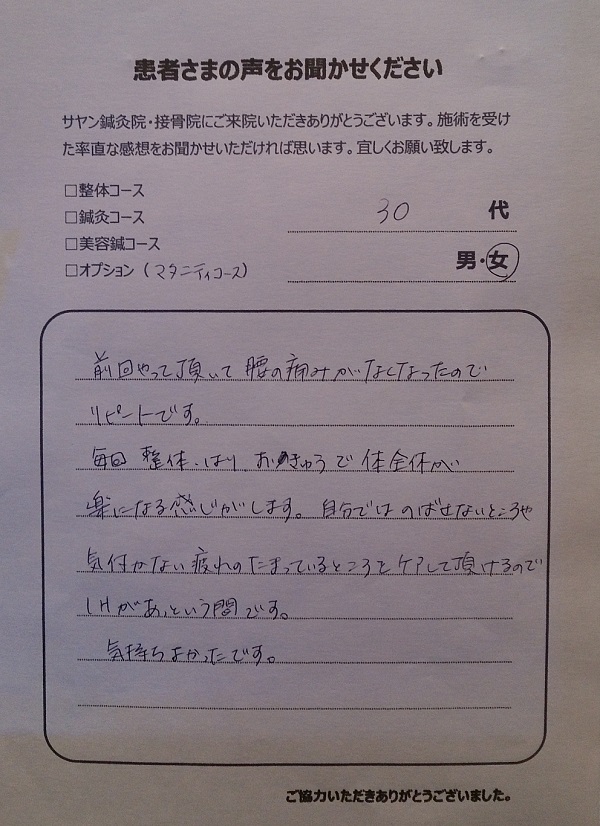 患者さまの声をお聞かせください
サヤン鍼灸院・接骨院にご来院いただきありがとうございます。施術を受け
た率直な感想をお聞かせいただければ思います。宜しくお願い致します。
□整体コース
□鍼灸コース
□美容鍼コース
□オプション（マタニティコース）
30 代
男・女
前回やって頂いて腰の痛みがなくなったので
リピートです。
毎回 整体、はり、おきゅうで体全体が
楽になる感じがします。自分ではのばせないところや
気付かない疲れのたまっているところをケアして頂けるので
1Hがあっという間です。
気持ちよかったです。
ご協力いただきありがとうございました。